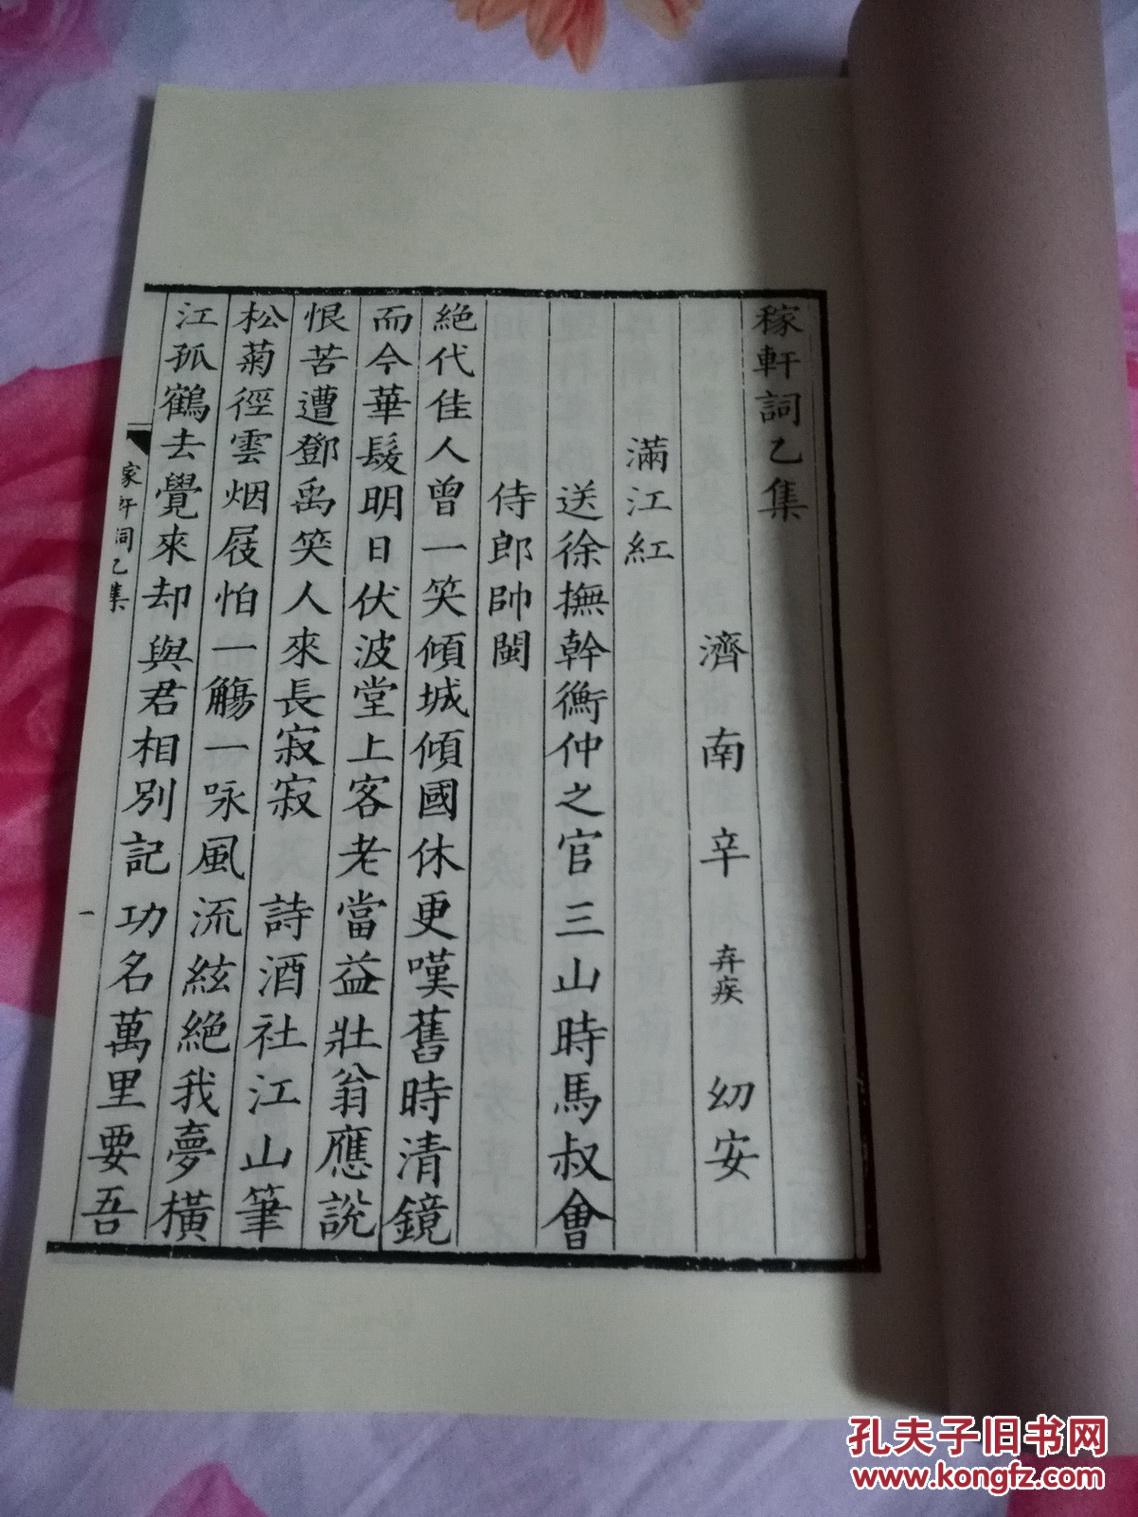 稼軒詞乙集
濟南辛 弃疾 幼安
滿江紅
送徐撫幹衡仲之官三山時馬叔會
侍郎帥閩
絶代佳人曾一笑傾城傾國休更嘆舊時清鏡
而今華髮明日伏波堂上客老當益壯翁應説
恨苦遭鄧禹笑人來長寂寂 詩酒社江山筆
松菊徑雲烟屐怕一觴一咏風流絃絶我夢橫
江孤鶴去覺來却與君相別記功名萬里要吾
稼軒詞乙集
一
孔夫子旧书网
www.kongfz.com